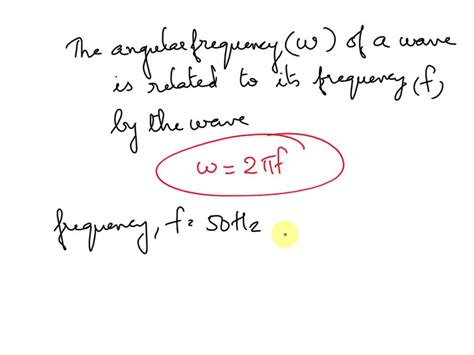 The angular frequency (ω) of a wave
is related to its frequency (f)
by the wave
ω = 2πf
frequency, f = 50Hz